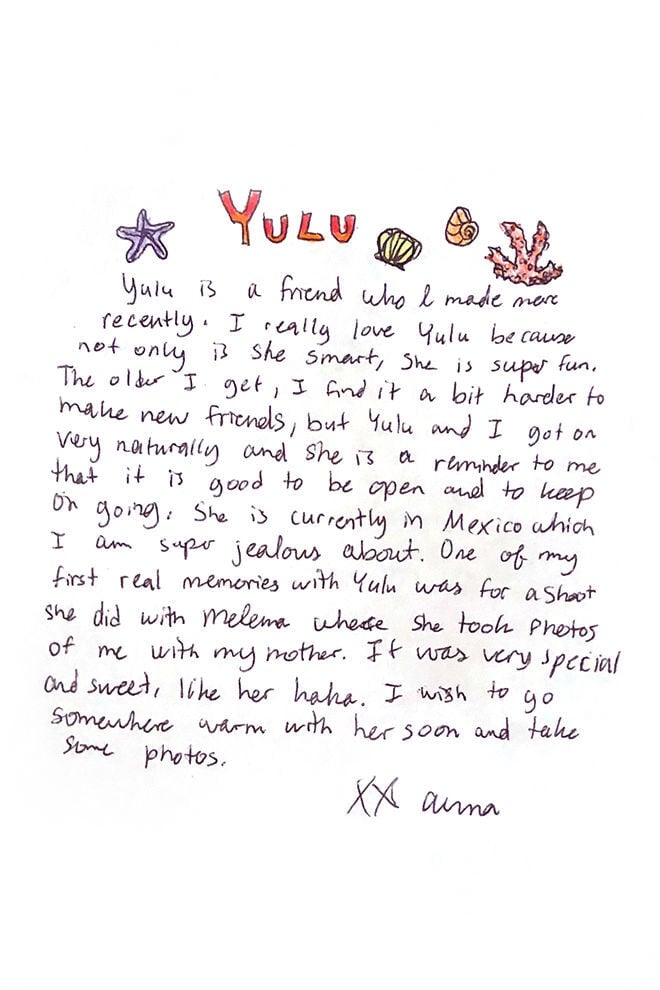 YULU
Yulu is a friend who I made more
recently. I really love Yulu because
not only is she smart, she is super fun.
The older I get, I find it a bit harder to
make new friends, but Yulu and I got on
very naturally and she is a reminder to me
that it is good to be open and to keep
on going. She is currently in Mexico which
I am super jealous about. One of my
first real memories with Yulu was for a shoot
she did with Melema where she took photos
of me with my mother. It was very special
and sweet, like her haha. I wish to go
somewhere warm with her soon and take
some photos.
XX